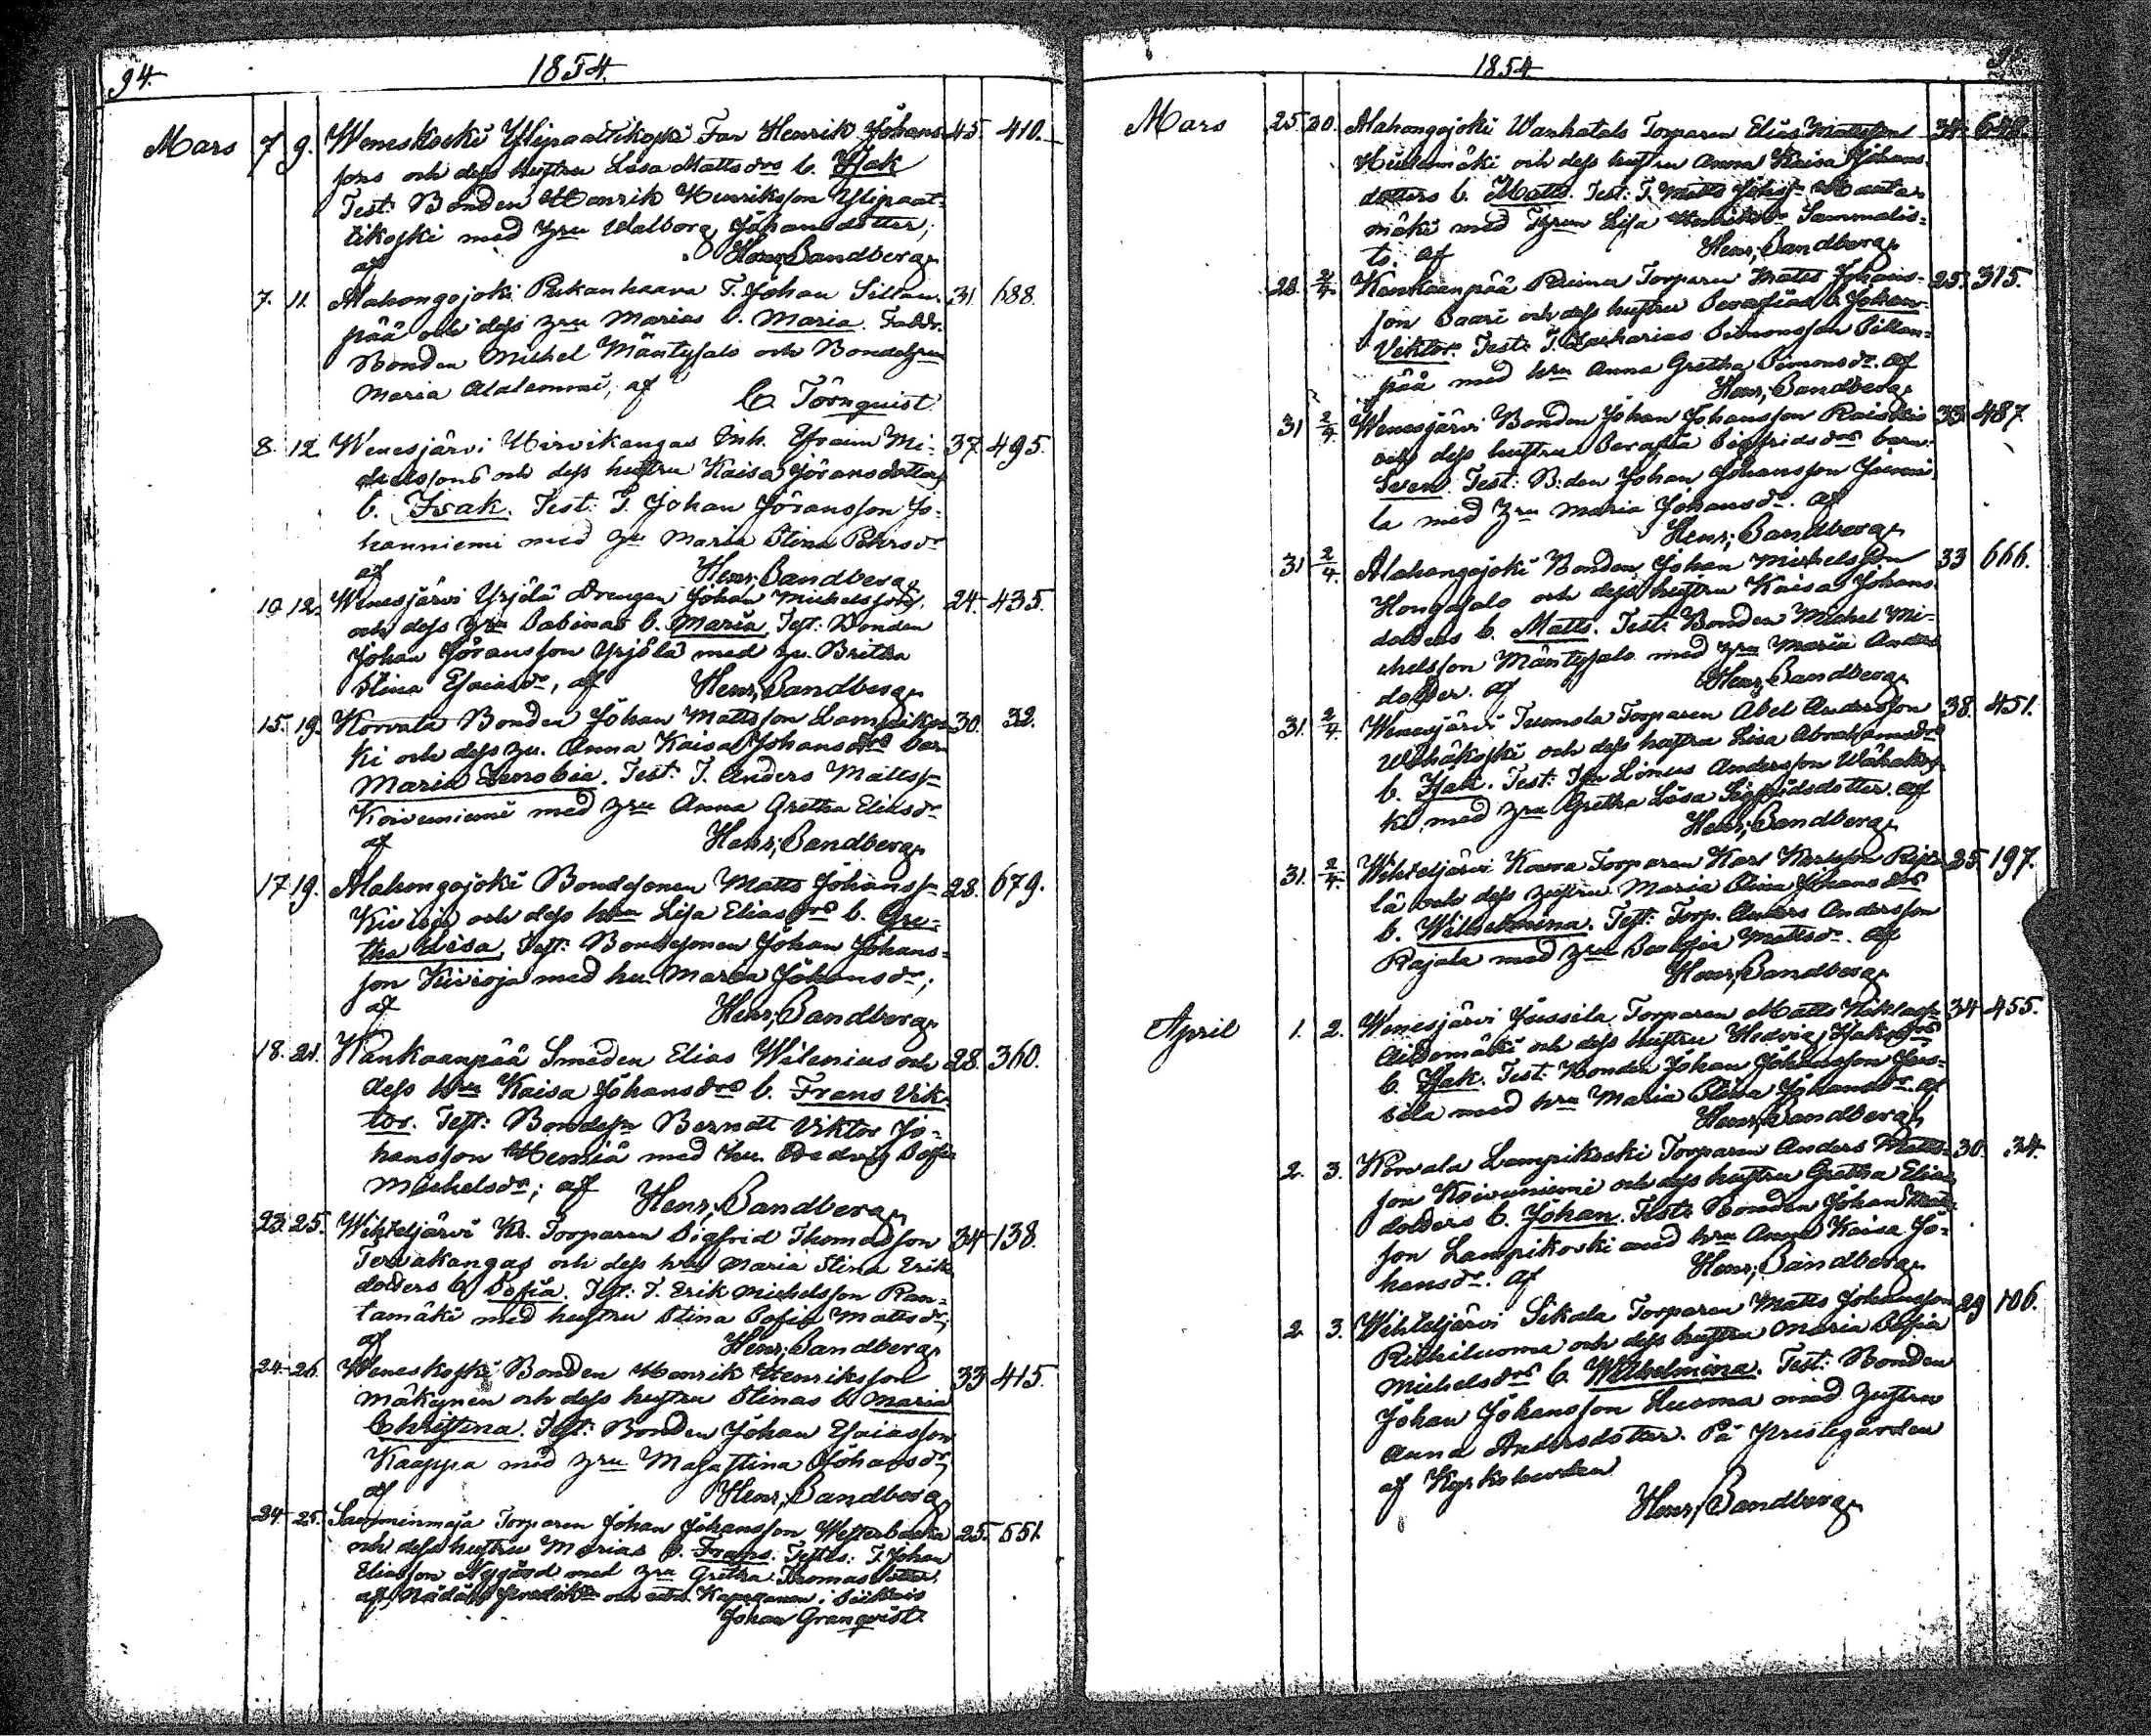 94.
1854.
Mars 7 9. Weneskoski Ylipaattikoski Far Henrik Johans- 45. 410.
sons och dess hustru Lisa Mattsdrs b. Isak
Test: Bonden Henrik Henriksson Ylipaat-
tikoski med hru Walborg Johansdotter,
af Henr. Sandberg.
7. 11. Alahongojoki Pukanhaara T. Johan Sillan- 31. 688.
pää och dess hru Marias b. Maria. Faddr.
Bonden Michel Mäntysalo och Bondehru
Maria Alaleemmi, af
C. Törnquist.
8. 12. Wenesjärvi Hirvikangas Inh. Efraim Mi- 37. 495.
chelssons och dess hustru Kaisa Jöransdotters
b. Isak. Test: T. Johan Jöransson Jo-
hanniemi med hu Maria Stina Pehrsdr
af Henr. Sandberg.
10. 12. Wenesjärvi Yrjölä Drengen Johan Michelssons 24. 435.
och dess hru Sabinas b. Maria. Test: Bonden
Johan Jöransson Yrjölä med hu. Britha
Stina Esaiasdr, af Henr. Sandberg.
15. 19. Korvala Bonden Johan Mattsson Lampikos- 30. 32.
ki och dess hu. Anna Kaisa Johansdrs barn
Maria Zenobia. Test: T. Anders Mattss.
Koivuniemi med hru Anna Gretha Eliasdr
af Henr. Sandberg.
17. 19. Alahongojoki Bondesonen Matts Johanss. 28. 679.
Kivioja och dess hru Lisa Eliasdrs b. Gre-
tha Lisa. Test: Bondesonen Johan Johans-
son Kivioja med hu. Maria Johansdr,
af Henr. Sandberg.
18. 21. Kankaanpää Smeden Elias Wilenius och 28. 360.
dess hru Kaisa Johansdrs b. Frans Vik-
tor. Test: Bondesn Berndt Viktor Jo-
hansson Hemiä med hu. Hedvig Sofia
Michelsdr; af Henr. Sandberg.
23. 25. Wihteljärvi Kr. Torparen Sigfrid Thomasson 34. 138.
Tervakangas och dess hru Maria Stina Eriks
dotters b. Sofia. Test: T. Erik Michelsson Ran-
tamäki med hustru Stina Sofia Mattsdr,
af Henr. Sandberg.
24. 26. Weneskoski Bonden Henrik Henriksson 33. 415.
Mäkynen och dess hustru Stinas b. Maria
Christina. Test: Bonden Johan Esaiasson
Kaappa med hru Maja Stina Johansdr,
af Henr. Sandberg.
24. 25. Samminmaja Torparen Johan Johansson Westerbacka 25. 551.
och dess hustru Marias b. Frans. Testes: T. Johan
Eliasson Nygård med hru Gretha Thomasdotter.
af Kapellanen i Siikais
Johan Granqvist.
1854.
Mars 25. 30. Alahongojoki Wanhatalo Torparen Elias Mattsson 34. 648.
och dess hustru Anna Kaisa Johans-
dotters b. Matts. Test: T. Matts
mäki med hrun Lisa Sammalis-
to. af Henr. Sandberg.
28. 2/4. Kankaanpää Raima Torparen Matts Johans- 25. 315.
son Saari och dess hustru Serafias b. Johan
Viktor. Test: T. Zacharias Simonsson Sillan-
pää med hru Anna Gretha Simonsdr. af
Henr. Sandberg.
31 2/4. Wenesjärvi Bonden Johan Johansson 33. 487.
och dess hustru Serafia Sigfridsdrs barn
Sven. Test: B:den Johan Johansson
la med hru Maria Johansdr. af
Henr. Sandberg.
31 2/4. Alahongojoki Bonden Johan Michelsson 33 666.
Hongasalo och dess hustru Kaisa Johans-
dotters b. Matts. Test: Bonden Michel Mi-
chelsson Mäntysalo med hru Maria Anders
dotter. af Henr. Sandberg.
31. 2/4. Wenesjärvi Tuomola Torparen Abel Andersson 38. 451.
Wähäkoski och dess hustru Lisa Abrahamsdrs
b. Isak. Test: Linus Andersson Wähäkos-
ki med hru Gretha Lisa Sigfridsdotter. af
Henr. Sandberg.
31. 2/4. Wihteljärvi Koura Torparen Karl Karlsson 25. 197.
lä och dess hustru Maria Stina Johansdrs
b. Wilhelmina. Test: Torp. Anders Andersson
Rajala med hru Serafia Mattsdr. af
Henr. Sandberg.
April 1. 2. Wenesjärvi Jussila Torparen Matts 34 455.
och dess hustru Hedvig Isaksdrs
b. Isak. Test: Bonden Johan Johansson Jus-
sila med hru Maria Stina Johansdr. af
Henr. Sandberg.
2. 3. Korvala Lampikoski Torparen Anders Matts- 30. 34.
son Koivuniemi och dess hustru Gretha Elias
dotters b. Johan. Test: Bonden Johan Matts-
son Lampikoski med hru Anna Kaisa Jo-
hansdr. af Henr. Sandberg.
2. 3. Wihteljärvi Sikala Torparen Matts Johansson 29 106.
Riihiluoma och dess hustru Maria Sofia
Michelsdrs b. Wilhelmina. Test: Bonden
Johan Johansson Luoma med hustru
Anna Andersdotter. På Prestgården
af Kyrkoherden
Henr. Sandberg.